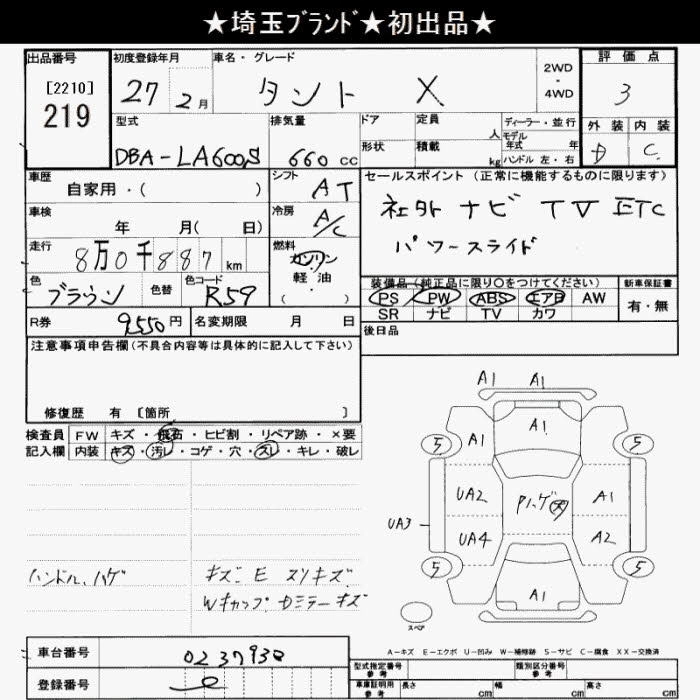 ★埼玉ﾌﾞﾗﾝﾄﾞ★初出品★
出品番号 初度登録年月 車名・グレード 2WD・4WD 評価点
[2210] 219 27 2月 タント X 3
型式 排気量 ドア 定員 人 ディーラー・並行 外装 内装
DBA-LA600S 660 cc 形状 積載 kg モデル年式 年 ハンドル 左・右 D C
車歴 自家用・( ) シフト AT セールスポイント (正常に機能するものに限ります)
車検 年 月( 日) 冷房 A/C 社外 ナビ TV ETC
走行 8万0千887km 燃料 ガソリン パワースライド
軽油
( )
色 ブラウン 色替 色コード R59 装備品(純正品に限り○をつけてください) 新車保証書
PS PW ABS エアB AW 有・無
SR ナビ TV カワ
R券 9550円 名変期限 月 日 後日品
注意事項申告欄(不具合内容等は具体的に記入して下さい)
修復歴 有 [箇所 ]
検査員 FW キズ・飛石・ヒビ割・リペア跡・×要
記入欄 内装 キズ・汚レ・コゲ・穴・スレ・キレ・破レ
A1 A1
A1 A1
5 5
UA2 A1
UA3 UA4 A2
5 5
A1
スペア
ハンドル、ハゲ キズ E スリキズ
Wキャップ
ミラーキズ
A-キズ E-エクボ U-凹み W-補修跡 S-サビ C-腐食 XX-交換済
車台番号 型式指定番号 参考 類別区分番号 参考
登録番号 車庫証明用 参考 長さ cm 幅 cm 高さ cm